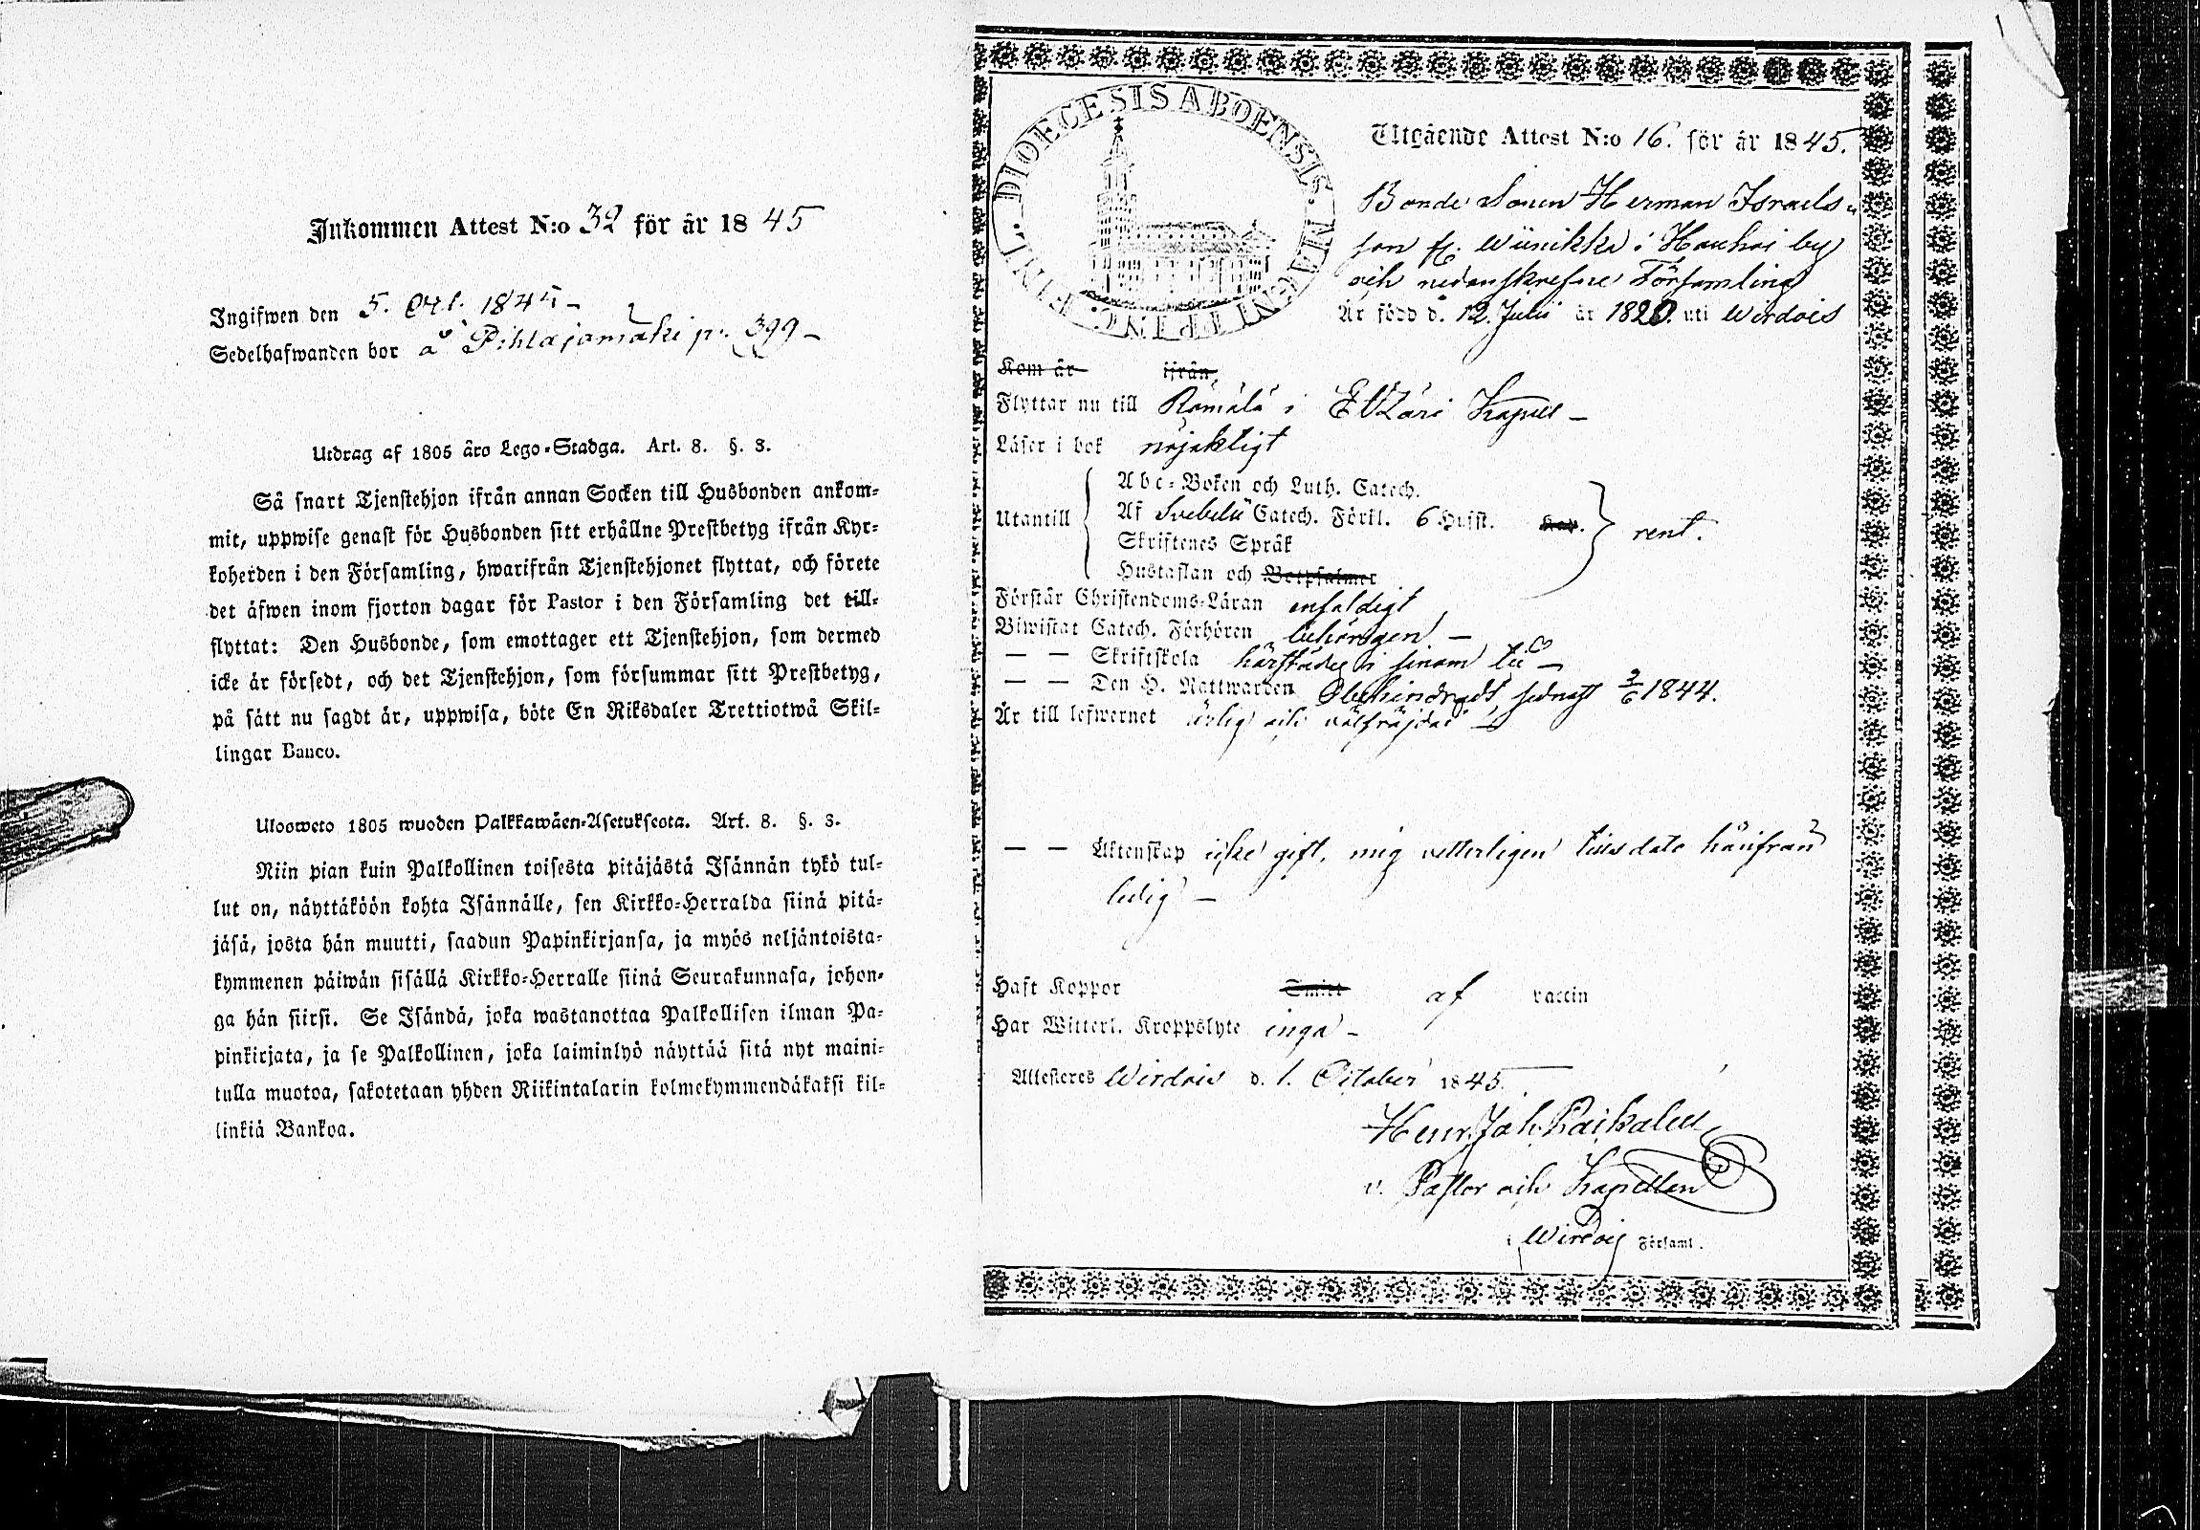 Inkommen Attest N:o 32 för år 1845
Ingifwen den 5. Oct. 1845 –
Sedelhafwanden bor å Pihlajamäki p. 399 –
Utdrag af 1805 åro Lego-Stadga. Art. 8. §. 3.
Så snart Tjenstehjon ifrån annan Socken till Husbonden ankom-
mit, uppwise genast för Husbonden sitt erhållne Prestbetyg ifrån Kyr-
koherden i den Församling, hwarifrån Tjenstehjonet flyttat, och förete
det äfwen inom fjorton dagar för Pastor i den Församling det till-
flyttat: Den Husbonde, som emottager ett Tjenstehjon, som dermed
icke är försedt, och det Tjenstehjon, som försummar sitt Prestbetyg,
på sätt nu sagdt är, uppwisa, böte En Riksdaler Trettiotwå Skil-
lingar Banco.
Uloosweto 1805 wuoden Palkkawäen-Asetuksesta. Art. 8. §. 3.
Niin pian kuin Palkollinen toisesta pitäjästä Isännän tykö tul-
lut on, näyttäköön kohta Isännälle, sen Kirkko-Herralda siinä pitä-
jäsä, josta hän muutti, saadun Papinkirjansa, ja myös neljäntoista-
kymmenen päiwän sisällä Kirkko-Herralle siinä Seurakunnasa, johon-
ga hän siirsi. Se Isändä, joka wastanottaa Palkollisen ilman Pa-
pinkirjata, ja se Palkollinen, joka laiminlyö näyttää sitä nyt maini-
tulla muotoa, sakotetaan yhden Riikintalarin kolmekymmendäkaksi kil-
linkiä Bankoa.
DIOECESIS ABOENSIS. MAGNI PRINC: FINL:
Utgående Attest N:o 16. för år 1845.
Bonde Sonen Herman Israels-
son fr. Wünikka i Hauhoi by
och nedanskrefne Församling
Är född d. 12. Julii år 1820. uti Wirdois
Kom år ifrån
Flyttar nu till Rämälä i Etzäri Kapell –
Läser i bok nöjaktigt
Abc-Boken och Luth. Catech.
Utantill Af Svebelii Catech. Förkl. 6 Hufst. Kap. rent.
Skriftenes Språk
Hustaflan och Botpsalmer
Förstår Christendoms-Läran enfaldigt
Biwistat Catech. Förhören behörigen –
– – Skriftskola härstädes i sinom tid –
– – Den H. Nattwarden Obehindradt, sednast 2/6 1844.
Är till lefwernet ärlig och välfräjdad –
– – Äktenskap icke gift, mig vetterligen tills dato härifrån
ledig –
Haft Koppor Smitt af vaccin
Har Witterl. Kroppslyte inga –
Attesteras Wirdois d. 1. October 1845.
Henr. Joh.
v. Pastor och Kapellan
i Wirdois Församl.